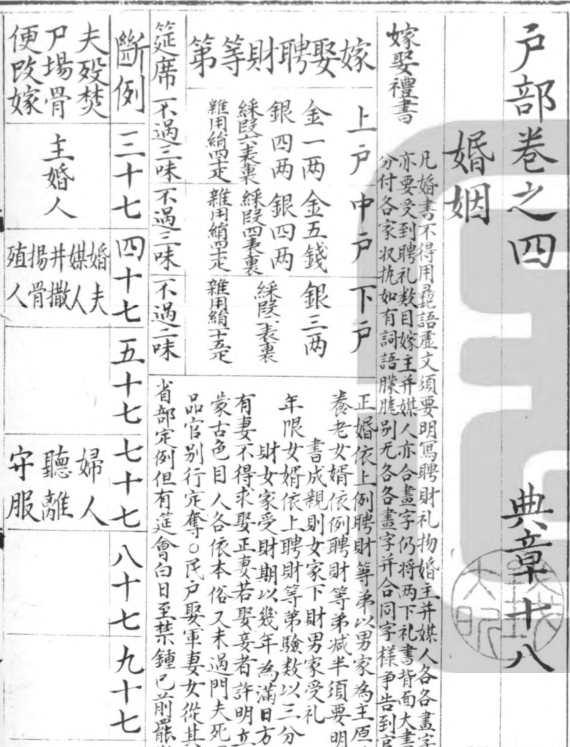 戶部卷之四
典章十八
婚姻
嫁娶禮書
凡婚書不得用彞語虛文須要明寫聘財礼物婚主并媒人各各畫字
亦要受到聘礼数目嫁主并媒人亦合畫字仍将两下礼書背面大書
分付各家収执如有詞語朦朧别无各各畫字并合同字樣爭告到官
嫁娶聘財等第
上戶
金一两
銀四两
綵叚六表裏
雜用絹四十疋
中戶
金五錢
銀四两
綵叚四表裏
雜用絹三十疋
下戶
銀三两
綵叚二表裏
雜用絹十五疋
筵席
不過三味
不過三味
不過二味
正婚依上例聘財等弟以男家為主原
養老女婿依例聘財等弟减半須要明
書成親則女家下財男家受礼
年限女婿依上聘財等第驗数以三分
財女家受財期以幾年為滿日方
有妻不得求娶正妻若娶妾者許明立
蒙古色目人各依本俗又未過門夫死
品官别行定奪○民戶娶軍妻女從其
省部定例但有筵會白日至禁鍾已前罷
斷例
三十七
四十七
五十七
七十七
八十七
九十七
夫殁焚
尸揚骨
便改嫁
主婚人
婚夫
媒人
井撒
揚骨
殖人
婦人
聽離
守服